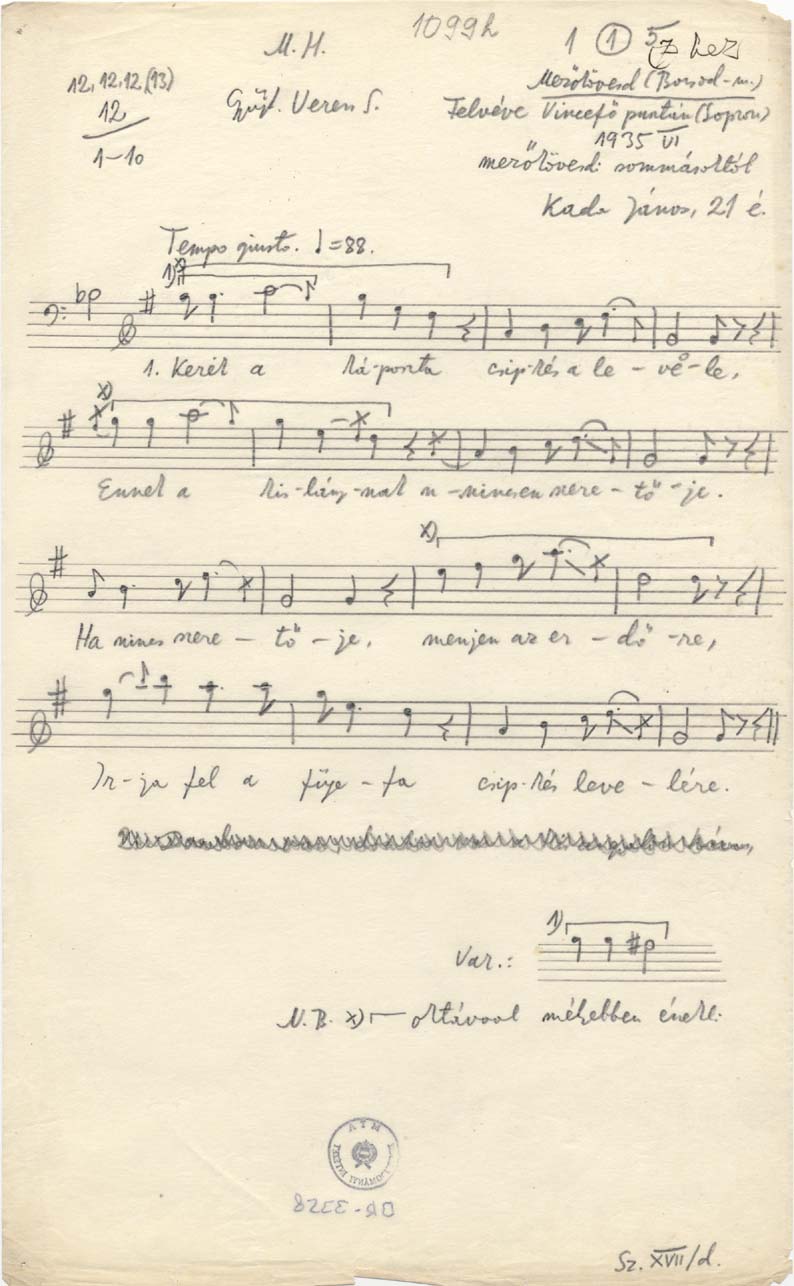 1099h
M. H.
1 ① 5
12, 12, 12, (13)
12
1–10
Gyűjt. Veress S.
Mezőkövesd (Borsod-m.)
Felvéve Vincefő pusztán (Sopron)
1935 VI
mezőkövesdi sommásoktól
Kada János, 21 é.
Tempo giusto. ♩=88.
1) x)
1. Kerek a ká-poszta csip-kés a le-ve-le,
x)
Ennek a kis-lány-nak n-nincsen szere-tő-je.
x)
Ha nincs szere-tő-je, menjen az er-dő-re,
Ir-ja fel a füge-fa csip-kés leve-lére.
1)
Var.:
N.B. x) oktávval mélyebben énekli
Sz. XVII/d.